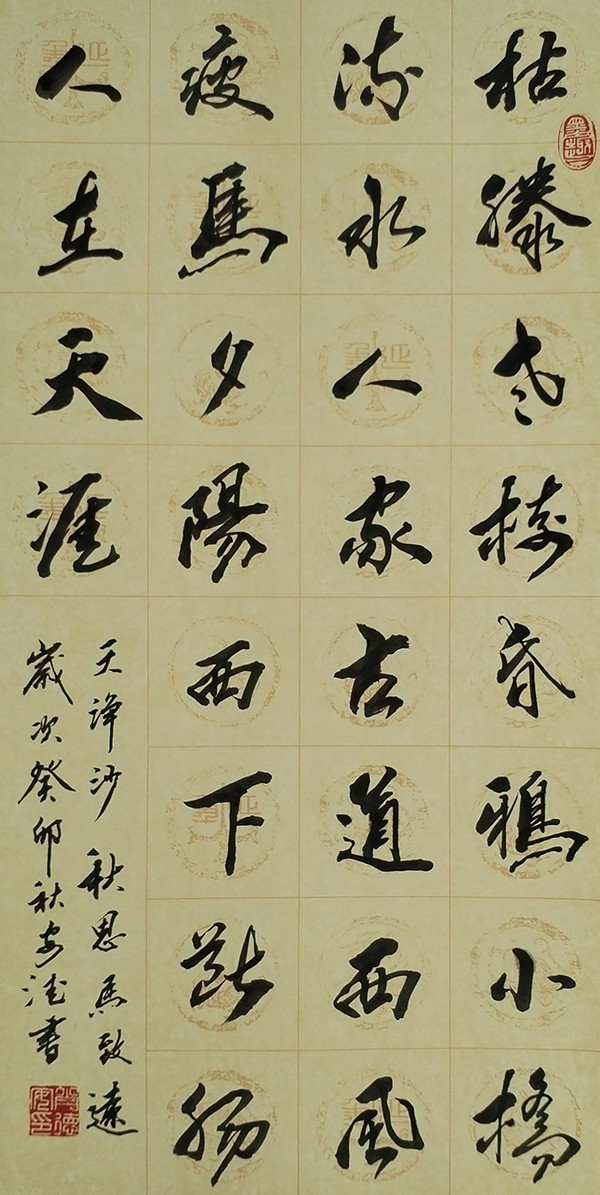 枯滕老樹昏鴉小橋
流水人家古道西風
瘦馬夕陽西下斷腸
人在天涯
天淨沙 秋思 馬致遠
歲次癸卯秋安德書
墨趣